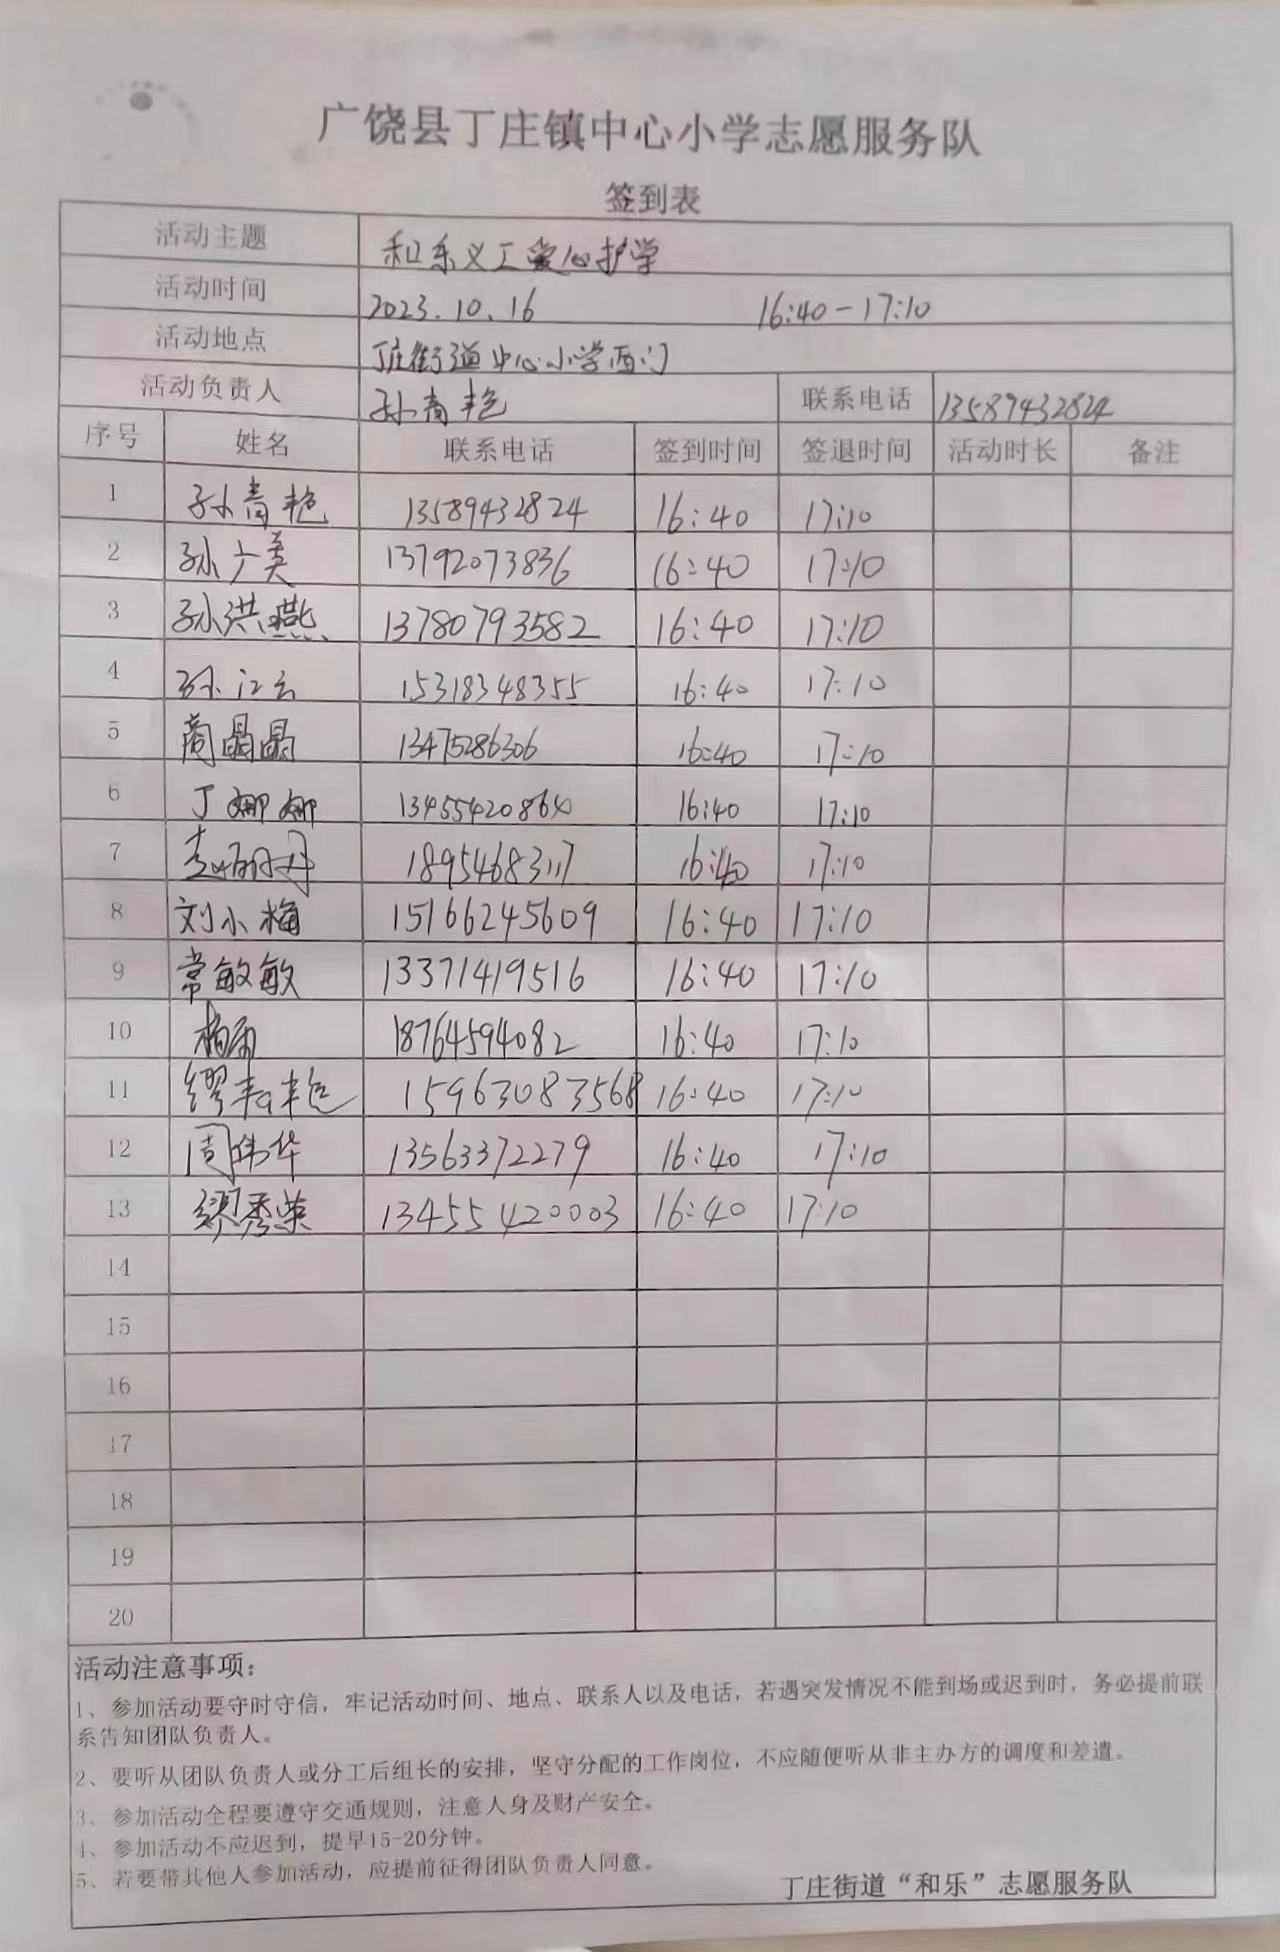 广饶县丁庄镇中心小学志愿服务队
签到表
活动主题 和乐义工爱心护学
活动时间 2023.10.16 16:40-17:10
活动地点 丁庄街道中心小学西门
活动负责人 孙青艳 联系电话 13589432824
序号 姓名 联系电话 签到时间 签退时间 活动时长 备注
1 孙青艳 13589432824 16:40 17:10
2 孙广美 13792073836 16:40 17:10
3 孙洪燕 13780793582 16:40 17:10
4 孙江云 15318348355 16:40 17:10
5 商晶晶 13475286306 16:40 17:10
6 丁娜娜 13455420860 16:40 17:10
7 李丽丹 18954683117 16:40 17:10
8 刘小梅 15166245609 16:40 17:10
9 常敏敏 13371419516 16:40 17:10
10 18764594082 16:40 17:10
11 缪丰艳 15963083568 16:40 17:10
12 周伟华 13563372279 16:40 17:10
13 缪秀荣 13455420003 16:40 17:10
14
15
16
17
18
19
20
活动注意事项：
1、参加活动要守时守信，牢记活动时间、地点、联系人以及电话，若遇突发情况不能到场或迟到时，务必提前联
系告知团队负责人。
2、要听从团队负责人或分工后组长的安排，坚守分配的工作岗位，不应随便听从非主办方的调度和差遣。
3、参加活动全程要遵守交通规则，注意人身及财产安全。
4、参加活动不应迟到，提早15-20分钟。
5、若要带其他人参加活动，应提前征得团队负责人同意。
丁庄街道“和乐”志愿服务队